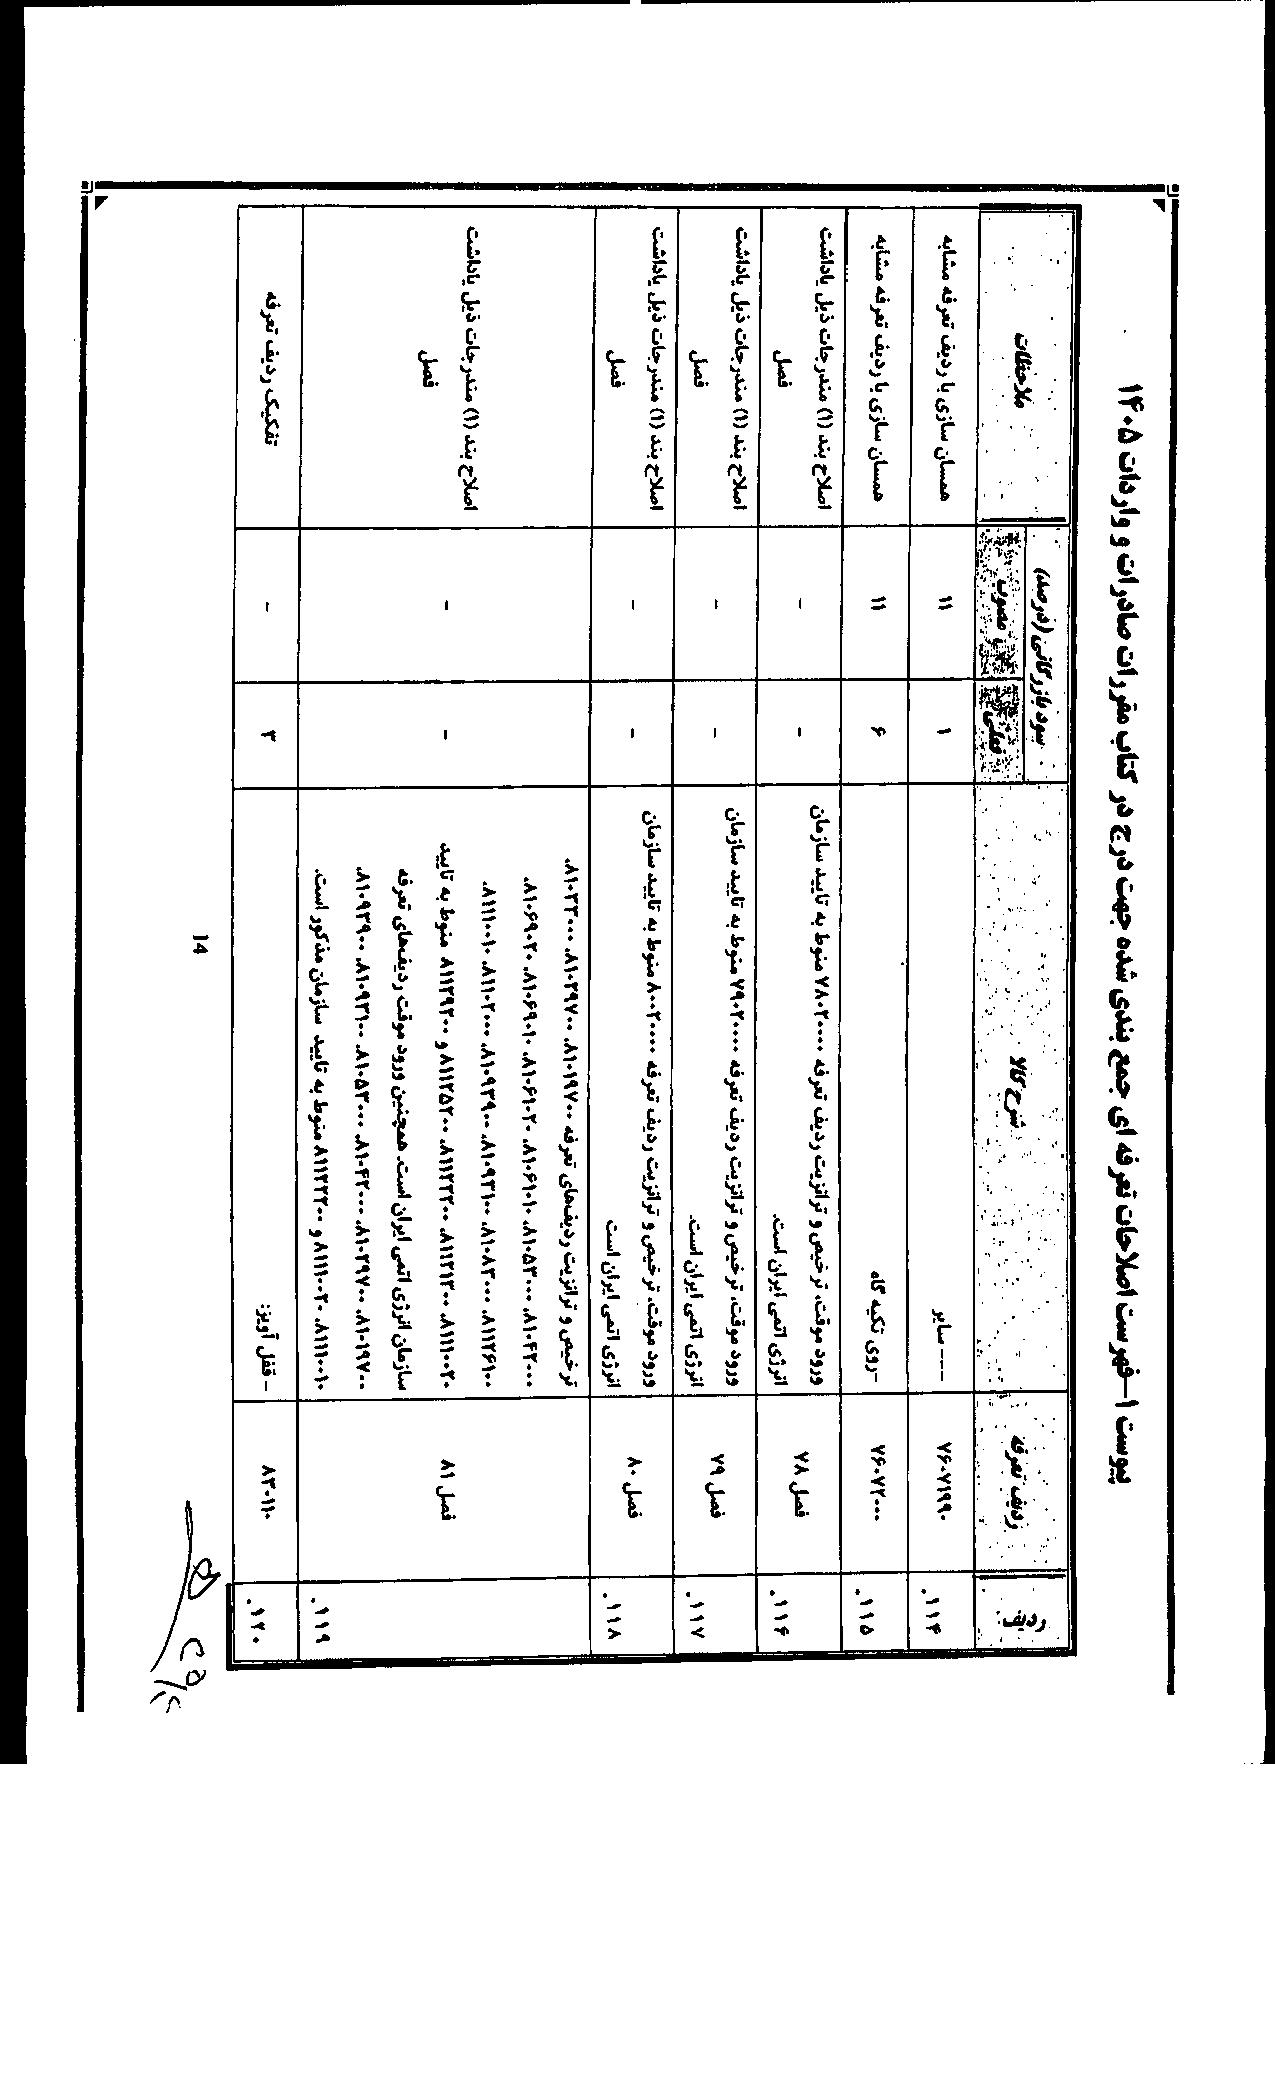 پیوست ۱-فهرست اصلاحات تعرفه ای جمع بندی شده جهت درج در کتاب مقررات صادرات و واردات ۱۴۰۵
ردیف
ردیف تعرفه
شرح کالا
سود بازرگانی (درصد)
فعلی
مصوب
ملاحظات
۱۱۴.
۷۶۰۷۱۹۹۰
---- سایر
۱
۱۱
همسان سازی با ردیف تعرفه مشابه
۱۱۵.
۷۶۰۷۲۰۰۰
-روی تکیه گاه
۶
۱۱
همسان سازی با ردیف تعرفه مشابه
۱۱۶.
فصل ۷۸
ورود موقت، ترخیص و ترانزیت ردیف تعرفه ۷۸۰۲۰۰۰۰ منوط به تایید سازمان
انرژی اتمی ایران است.
-
-
اصلاح بند (۱) مندرجات ذیل یاداشت
فصل
۱۱۷.
فصل ۷۹
ورود موقت، ترخیص و ترانزیت ردیف تعرفه ۷۹۰۲۰۰۰۰ منوط به تایید سازمان
انرژی اتمی ایران است.
-
-
اصلاح بند (۱) مندرجات ذیل یاداشت
فصل
۱۱۸.
فصل ۸۰
ورود موقت، ترخیص و ترانزیت ردیف تعرفه ۸۰۰۲۰۰۰۰ منوط به تایید سازمان
انرژی اتمی ایران است
-
-
اصلاح بند (۱) مندرجات ذیل یاداشت
فصل
۱۱۹.
فصل ۸۱
ترخیص و ترانزیت ردیف‌های تعرفه ۸۱۰۱۹۷۰۰، ۸۱۰۲۹۷۰۰، ۸۱۰۳۳۰۰۰،
۸۱۰۴۲۰۰۰، ۸۱۰۵۳۰۰۰، ۸۱۰۶۱۰۱۰، ۸۱۰۶۱۰۲۰، ۸۱۰۶۹۰۱۰، ۸۱۰۶۹۰۲۰،
۸۱۱۲۶۱۰۰، ۸۱۰۸۳۰۰۰، ۸۱۰۹۳۱۰۰، ۸۱۰۹۳۹۰۰، ۸۱۱۰۲۰۰۰، ۸۱۱۱۰۰۱۰،
۸۱۱۱۰۰۲۰، ۸۱۱۲۱۳۰۰، ۸۱۱۲۲۲۰۰، ۸۱۱۲۵۲۰۰ و ۸۱۱۲۹۲۰۰ منوط به تایید
سازمان انرژی اتمی ایران است. همچنین ورود موقت ردیف‌های تعرفه
۸۱۰۱۹۷۰۰، ۸۱۰۲۹۷۰۰، ۸۱۰۴۲۰۰۰، ۸۱۰۵۳۰۰۰، ۸۱۰۹۳۱۰۰، ۸۱۰۹۳۹۰۰،
۸۱۱۱۰۰۱۰، ۸۱۱۱۰۰۲۰ و ۸۱۱۲۲۲۰۰ منوط به تایید سازمان مذکور است.
-
-
اصلاح بند (۱) مندرجات ذیل یاداشت
فصل
۱۲۰.
۸۳۰۱۱۰
- قفل آویز:
۳
-
تفکیک ردیف تعرفه
14